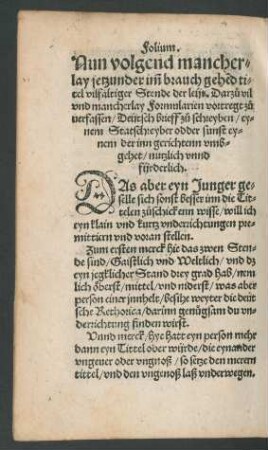 Folium.
Nun volgend mancher⸗
lay jetzunder iñ brauch gehēd tit⸗
tel vilfaltiger Stende der leüt. Darzů vil
vnd mancherlay Formularien vortregt zů
verfassen / Deütsch brieff zů schreyben / ey⸗
nem Statschreyber odder sunst ey⸗
nem der inn gerichtenn vmb⸗
gehet / nutzlich vnnd
fürderlich.
DAs aber eyn Junger ge⸗
selle sich sonst besser inn die Tit⸗
telen zůschickenn wisse / will ich
eyn klain vnd kurtz vnderrichtungen pre⸗
mittiern vnd voran stellen.
Zum ersten merck hie das zwen Sten⸗
de sind / Gaistlich vnd Weltlich / vnd dz
eyn jegklicher Stand drey grad hab / nem
lich öberst / mittel / vnd niderst / was aber
person einer innhelt / besihe weyter die deüt
sche Rethorica / darinn genůgsam du vn⸗
derrichtung finden wirst.
Vnnd merck / hye hatt eyn person mehr
dann eyn Tittel oder würde / die eynander
vngeuer oder vngnoß / so setze den merern
tittel / vnd den vngenoß laß vnderwegen.